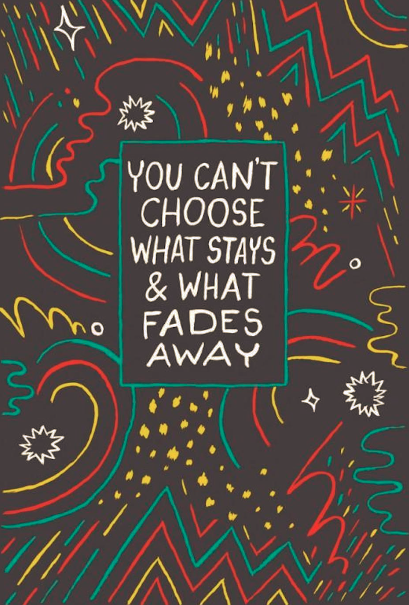 YOU CAN'T
CHOOSE
WHAT STAYS
& WHAT
FADES
AWAY